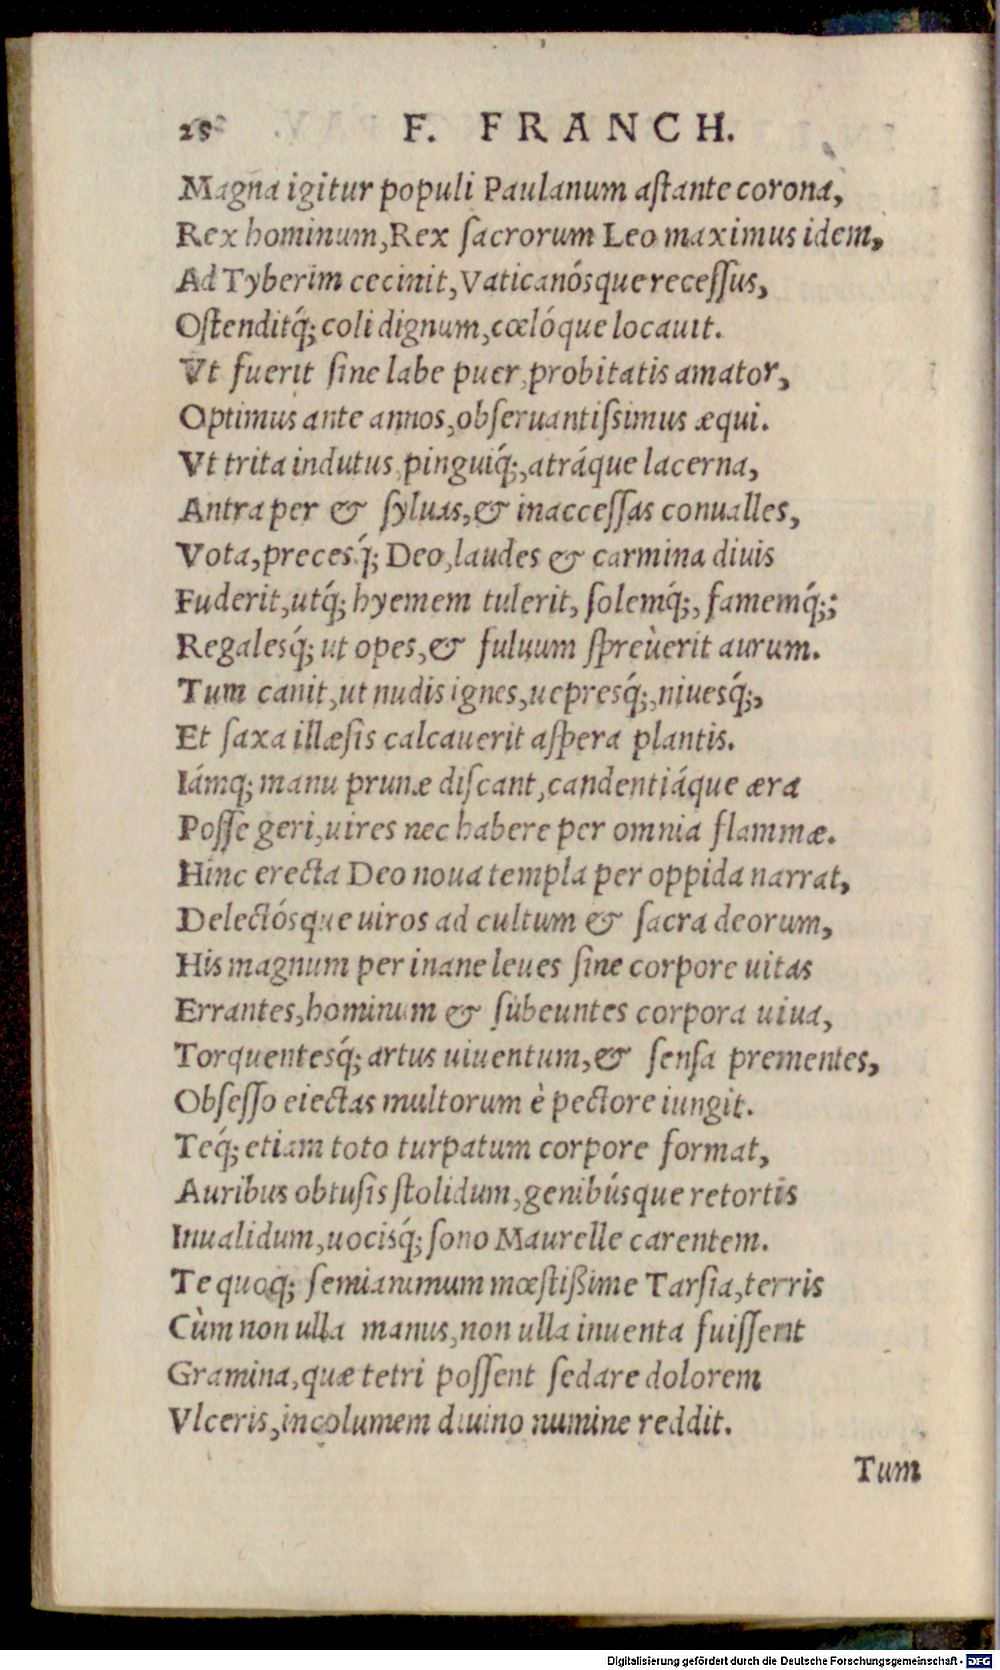 25 F. FRANCH.
Magna igitur populi Paulanum aſtante corona,
Rex hominum, Rex ſacrorum Leo maximus idem,
Ad Tyberim cecinit, Vaticanósque receſſus,
Oſtenditq́; coli dignum, cœlóque locauit.
Vt fuerit ſine labe puer, probitatis amator,
Optimus ante annos, obſeruantiſsimus æqui.
Vt trita indutus, pinguiq́;, atráque lacerna,
Antra per & ſyluas, & inacceſſas conualles,
Vota, precesq́; Deo, laudes & carmina diuis
Fuderit, utq́; hyemem tulerit, ſolemq́;, famemq́;;
Regalesq́; ut opes, & fuluum ſpreùerit aurum.
Tum canit, ut nudis ignes, uepresq́;, niuesq́;,
Et ſaxa illæſis calcauerit aſpera plantis.
Iámq; manu prunæ diſcant, candentiáque æra
Poſſe geri, uires nec habere per omnia flammæ.
Hinc erecta Deo noua templa per oppida narrat,
Delectósque uiros ad cultum & ſacra deorum,
His magnum per inane leues ſine corpore uitas
Errantes, hominum & ſubeuntes corpora uiua,
Torquentesq́; artus uiuentum, & ſenſa prementes,
Obſeſſo eiectas multorum è pectore iungit.
Teq́; etiam toto turpatum corpore format,
Auribus obtuſis ſtolidum, genibúsque retortis
Inualidum, uocisq́; ſono Maurelle carentem.
Te quoq; ſemianimum mœſtißime Tarſia, terris
Cùm non ulla manus, non ulla inuenta fuiſſent
Gramina, quæ tetri poſſent ſedare dolorem
Vlceris, incolumem diuino numine reddit.
Tum
Digitalisierung gefördert durch die Deutsche Forschungsgemeinschaft - DFG